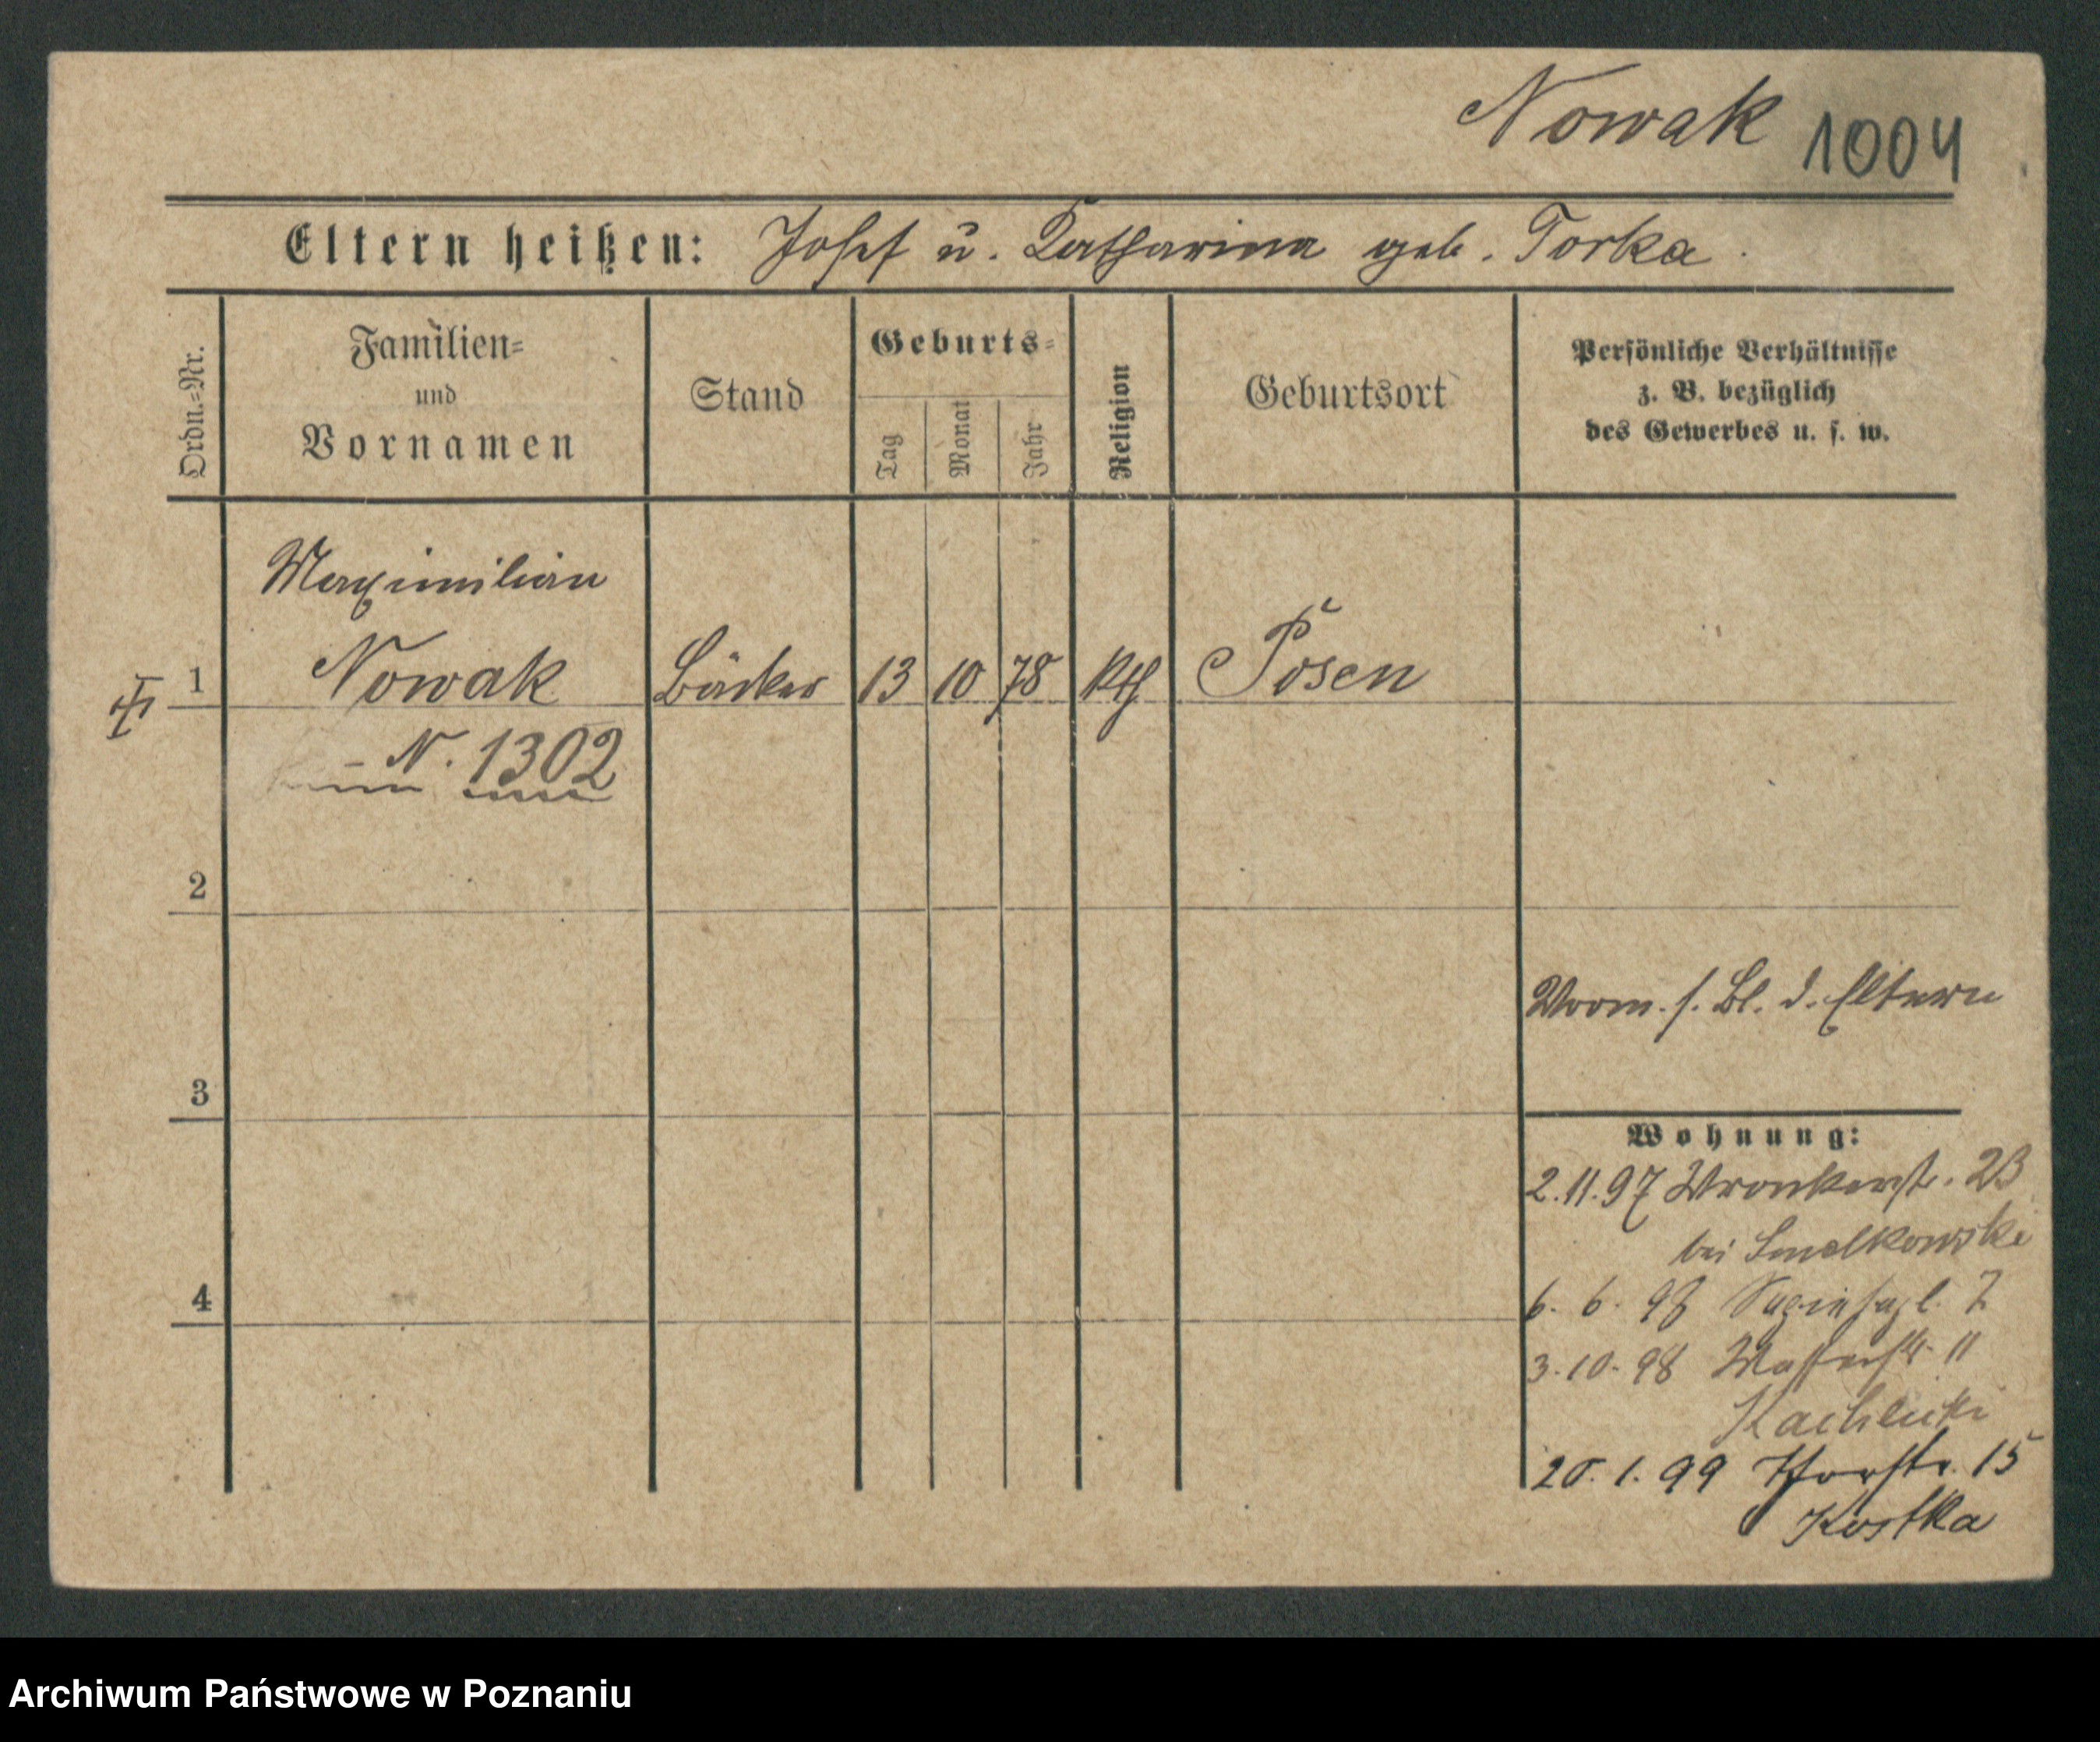 Nowak 1004
Eltern heißen: Josef u. Katharina geb. Torka.
Ordn.=Nr.
Familien=
und
Vornamen
Stand
Geburts=
Tag
Monat
Jahr
Religion
Geburtsort
Persönliche Verhältnisse
z. B. bezüglich
des Gewerbes u. s. w.
Maximilian
1 Nowak Bäcker 13 10 78 kth Posen
N. 1302
2
Vorm. s. Bl. d. Eltern
3
Wohnung:
2.11.97 Wronkerstr. 23
bei Smelkowski
4
6. 6. 98 7
3.10.98 Wasserstr. 11
20. 1. 99 Thorstr. 15
Kostka
Archiwum Państwowe w Poznaniu